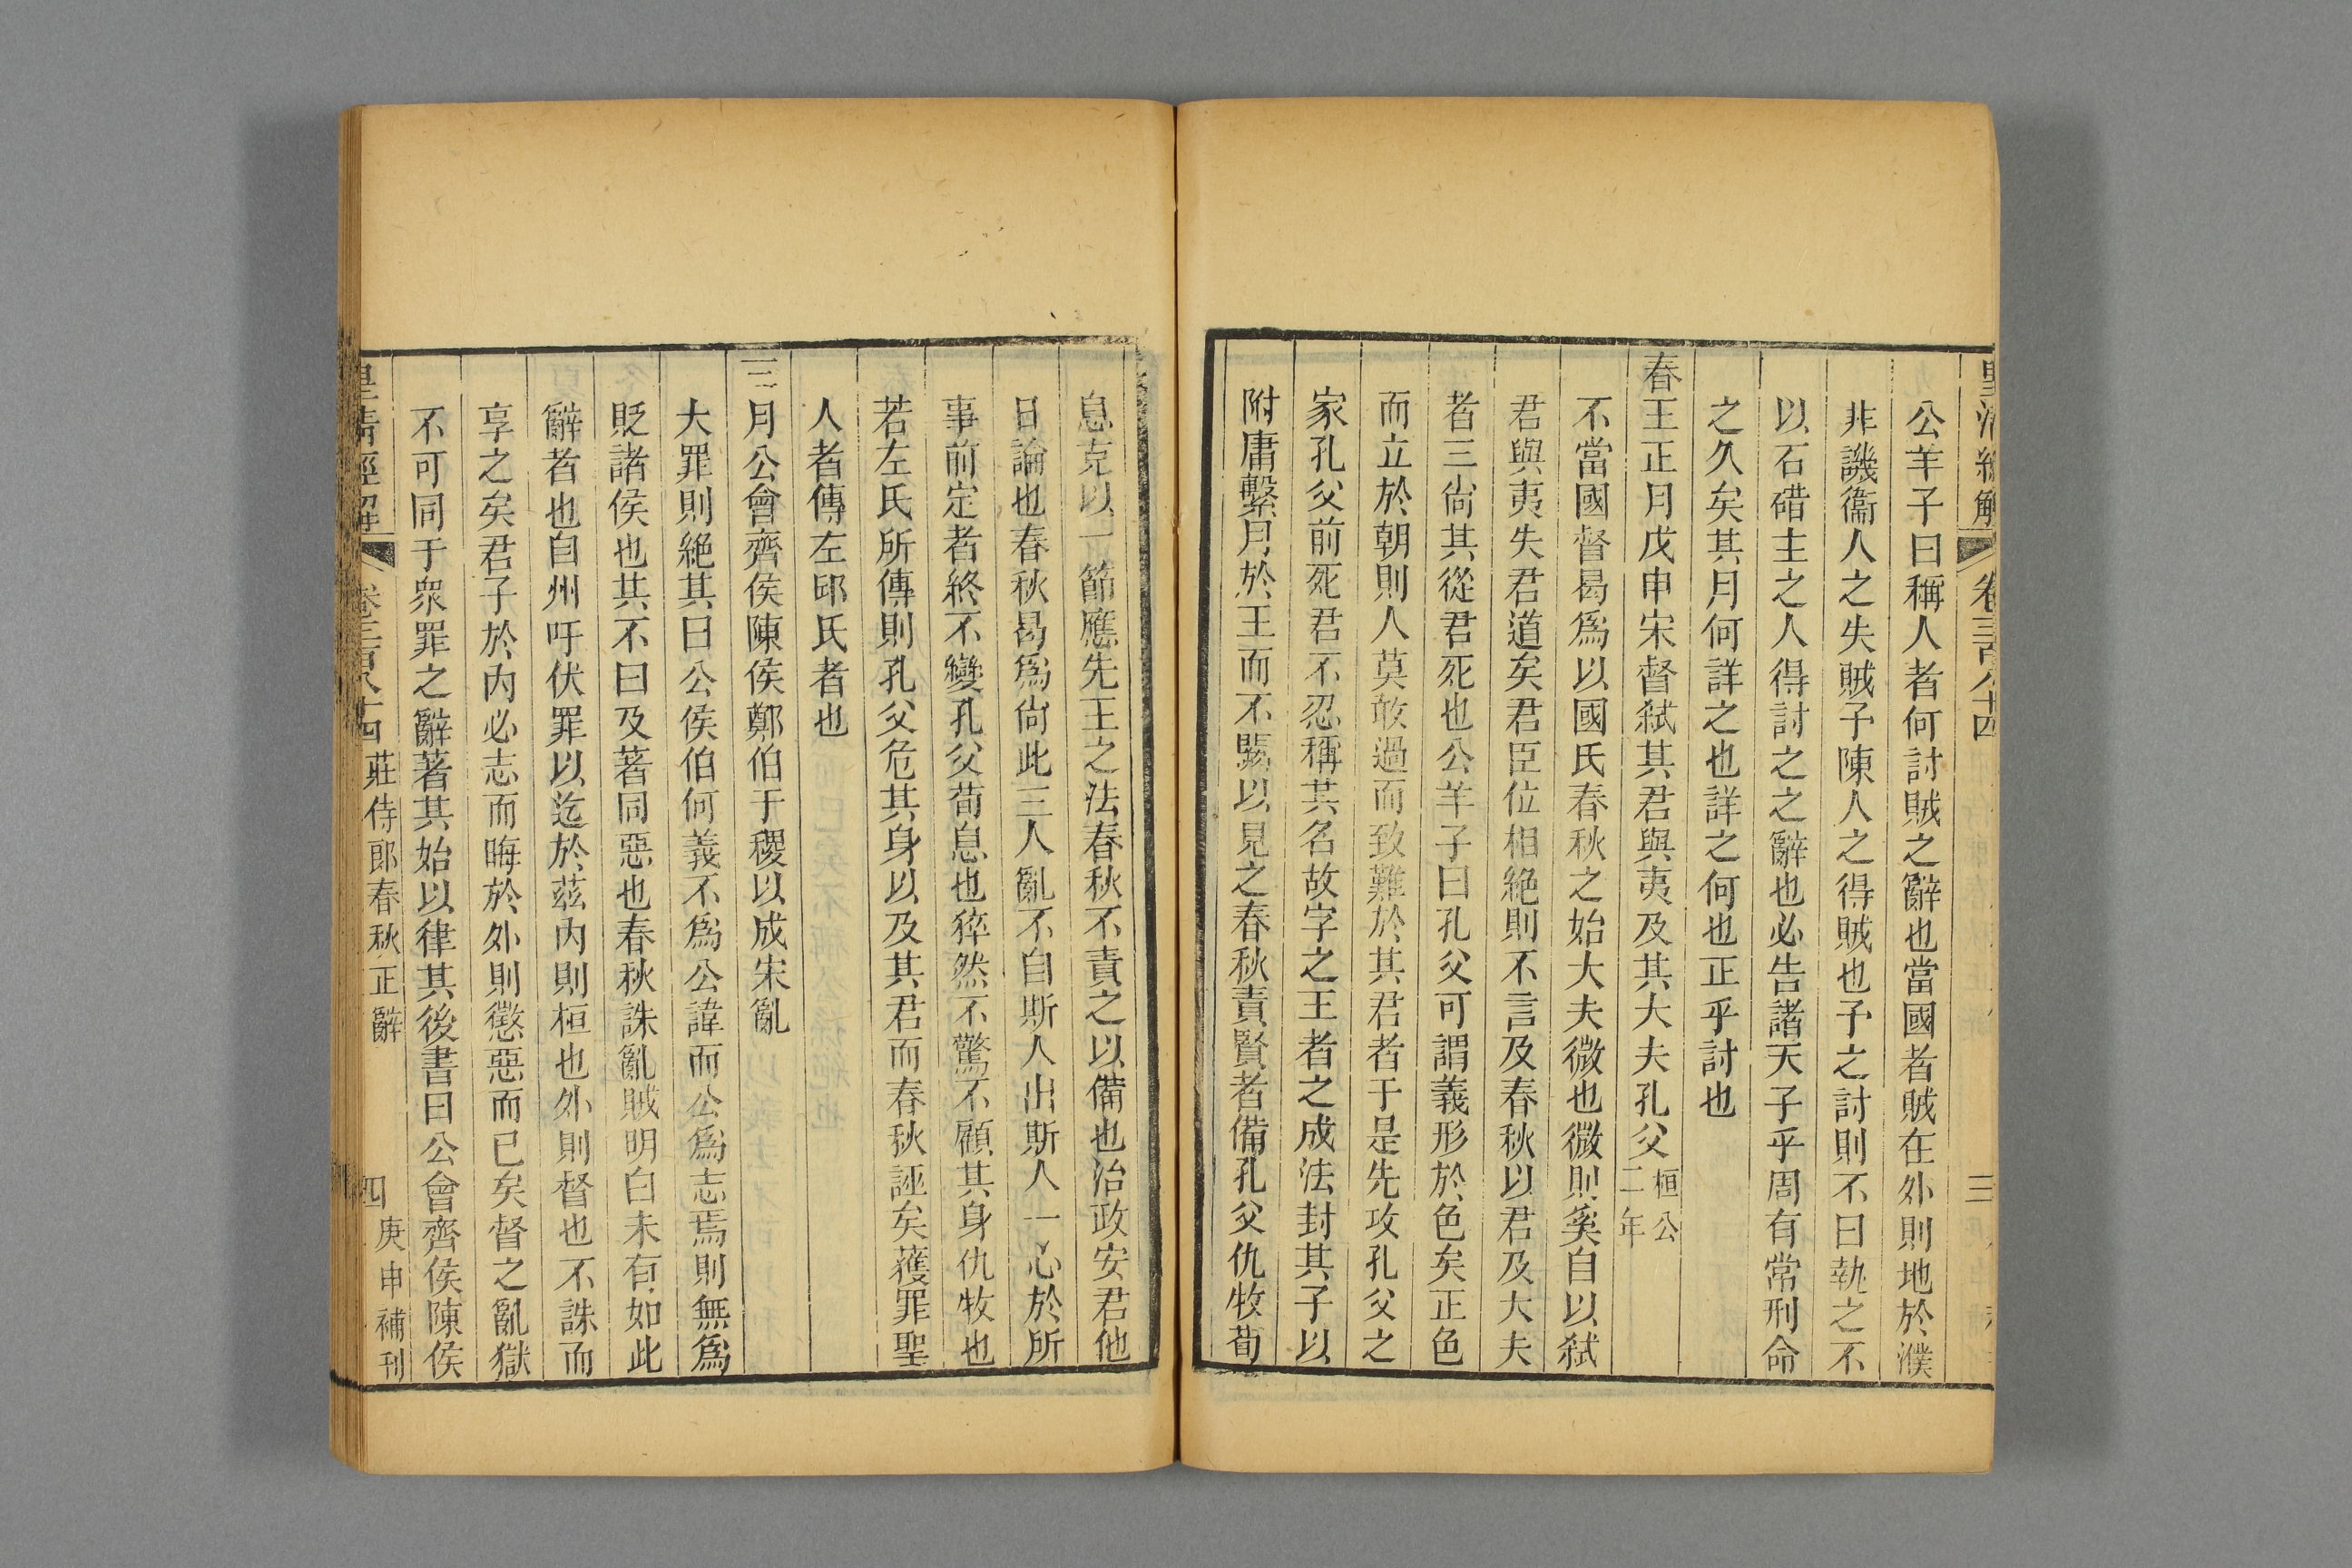 皇清經解 卷三百八十四 三
公羊子曰稱人者何討賊之辭也當國者賊在外則地於濮
非譏衞人之失賊予陳人之得賊也予之討則不曰執之不
以石碏主之人得討之之辭也必告諸天子乎周有常刑命
之久矣其月何詳之也詳之何也正乎討也
春王正月戊申宋督弒其君與夷及其大夫孔父桓公二年
不當國督曷爲以國氏春秋之始大夫微也微則奚自以弒
君與夷失君道矣君臣位相絶則不言及春秋以君及大夫
者三尙其從君死也公羊子曰孔父可謂義形於色矣正色
而立於朝則人莫敢過而致難於其君者于是先攻孔父之
家孔父前死君不忍稱其名故字之王者之成法封其子以
附庸繫月於王而不賜以見之春秋責賢者備孔父仇牧荀
息克以一節應先王之法春秋不責之以備也治政安君他
日論也春秋曷爲尙此三人亂不自斯人出斯人一心於所
事前定者終不變孔父荀息也猝然不驚不顧其身仇牧也
若左氏所傳則孔父危其身以及其君而春秋誣矣蒦罪聖
人者傳左邱氏者也
三月公會齊侯陳侯鄭伯于稷以成宋亂
大罪則絶其曰公侯伯何義不爲公諱而公爲志焉則無爲
貶諸侯也其不曰及著同惡也春秋誅亂賊明白未有如此
辭者也自州吁伏罪以迄於茲內則桓也外則督也不誅而
享之矣君子於內必志而晦於外則懲惡而已矣督之亂獄
不可同于衆罪之辭著其始以律其後書曰公會齊侯陳侯
皇清經解 卷三百八十四 莊侍郎春秋正辭 四 庚申補刊